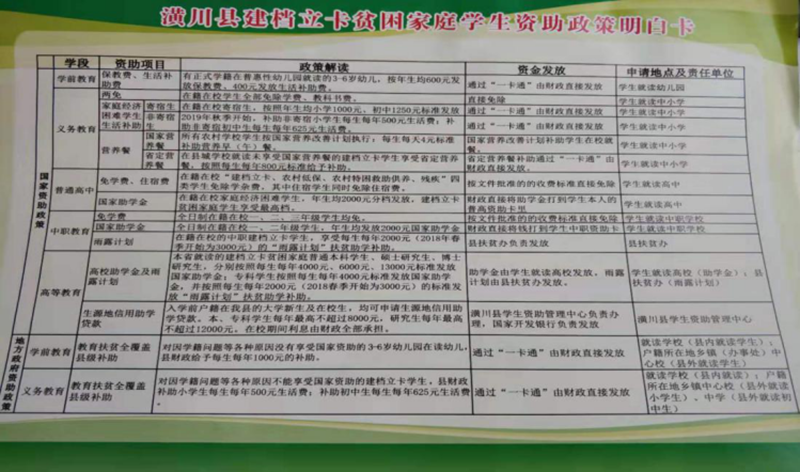 潢川县建档立卡贫困家庭学生资助政策明白卡
学段 资助项目 政策解读 资金发放 申请地点及责任单位
国家资助政策
学前教育
保教费、生活补助费
有正式学籍在普惠性幼儿园就读的3-6岁幼儿，按年生均600元发放保教费、400元发放生活补助费。
通过“一卡通”由财政直接发放
学生就读幼儿园
义务教育
两免
在籍在校学生全部免除学费、教科书费。
直接免除
学生就读中小学
家庭经济困难学生生活补助
寄宿生
在籍在校寄宿生，按照年生均小学1000元，初中1250元标准发放
通过“一卡通”由财政直接发放
学生就读中小学
非寄宿生
2019年秋季开始，补助非寄宿小学生每生每年500元生活费；补助非寄宿初中生每生每年625元生活费。
通过“一卡通”由财政直接发放
学生就读中小学
营养餐
国家营养餐
所有农村学校学生按国家营养改善计划执行；每生每天4元标准补助营养早（午）餐。
国家营养改善计划补助学生在校就餐。
学生就读中小学
省定营养餐
在县城学校就读未享受国家营养餐的建档立卡学生享受省定营养餐，按照每生每年800元标准给予补助。
省定营养餐补助通过“一卡通”由财政直接发放。
学生就读中小学
普通高中
免学费、住宿费
在籍在校“建档立卡、农村低保、农村特困救助供养、残疾”四类学生免除学杂费，其中住宿生同时免除住宿费。
按文件批准的的收费标准直接免除
学生就读高中
国家助学金
在籍在校家庭经济困难学生，年生均2000元分档发放，建档立卡贫困家庭学生享受最高档。
财政直接将助学金打到学生本人的普高资助卡里
学生就读高中
中职教育
免学费
全日制在籍在校一、二、三年级学生均免。
按文件批准的的收费标准直接免除
学生就读中职学校
国家助学金
全日制在籍在校一、二年级学生，年生均发放2000元国家助学金
财政直接将钱打到学生中职资助卡
学生就读中职学校
雨露计划
在籍在校的中职建档立卡学生，享受每生每年2000元（2018年春季开始为3000元）的“雨露计划”扶贫助学补助。
县扶贫办负责发放
县扶贫办
高等教育
高校助学金及雨露计划
本省就读的建档立卡贫困家庭普通本科学生、硕士研究生、博士研究生，分别按照每生每年4000元、6000元、13000元标准发放国家助学金；专科学生按照每生每年4000元标准发放国家助学金，并按照每生每年2000元（2018春季开始为3000元）的标准发放“雨露计划”扶贫助学补助。
助学金由学生就读高校发放，雨露计划由县扶贫办发放。
学生就读高校（助学金）；县扶贫办（雨露计划）
生源地信用助学贷款
入学前户籍在我县的大学新生及在校生，均可申请生源地信用助学贷款。本、专科学生每年最高不超过8000元，研究生每年最高不超过12000元，在校期间利息由财政全部承担。
潢川县学生资助管理中心负责办理，国家开发银行负责发放
潢川县学生资助管理中心
地方政府资助政策
学前教育
教育扶贫全覆盖县级补助
对因学籍问题等各种原因没有享受国家资助的3-6岁幼儿园在读幼儿，县财政给予每生每年1000元的补助。
通过“一卡通”由财政直接发放
就读学校（县内就读学生）；户籍所在地乡镇（办事处）中心校（县外就读学生）
义务教育
教育扶贫全覆盖县级补助
对因学籍问题等各种原因不能享受国家资助的建档立卡学生，县财政补助小学生每生每年500元生活费；补助初中生每生每年625元生活费。
通过“一卡通”由财政直接发放
就读学校（县内就读）；户籍所在地乡镇中心校（县外就读小学生）、中学（县外就读初中生）